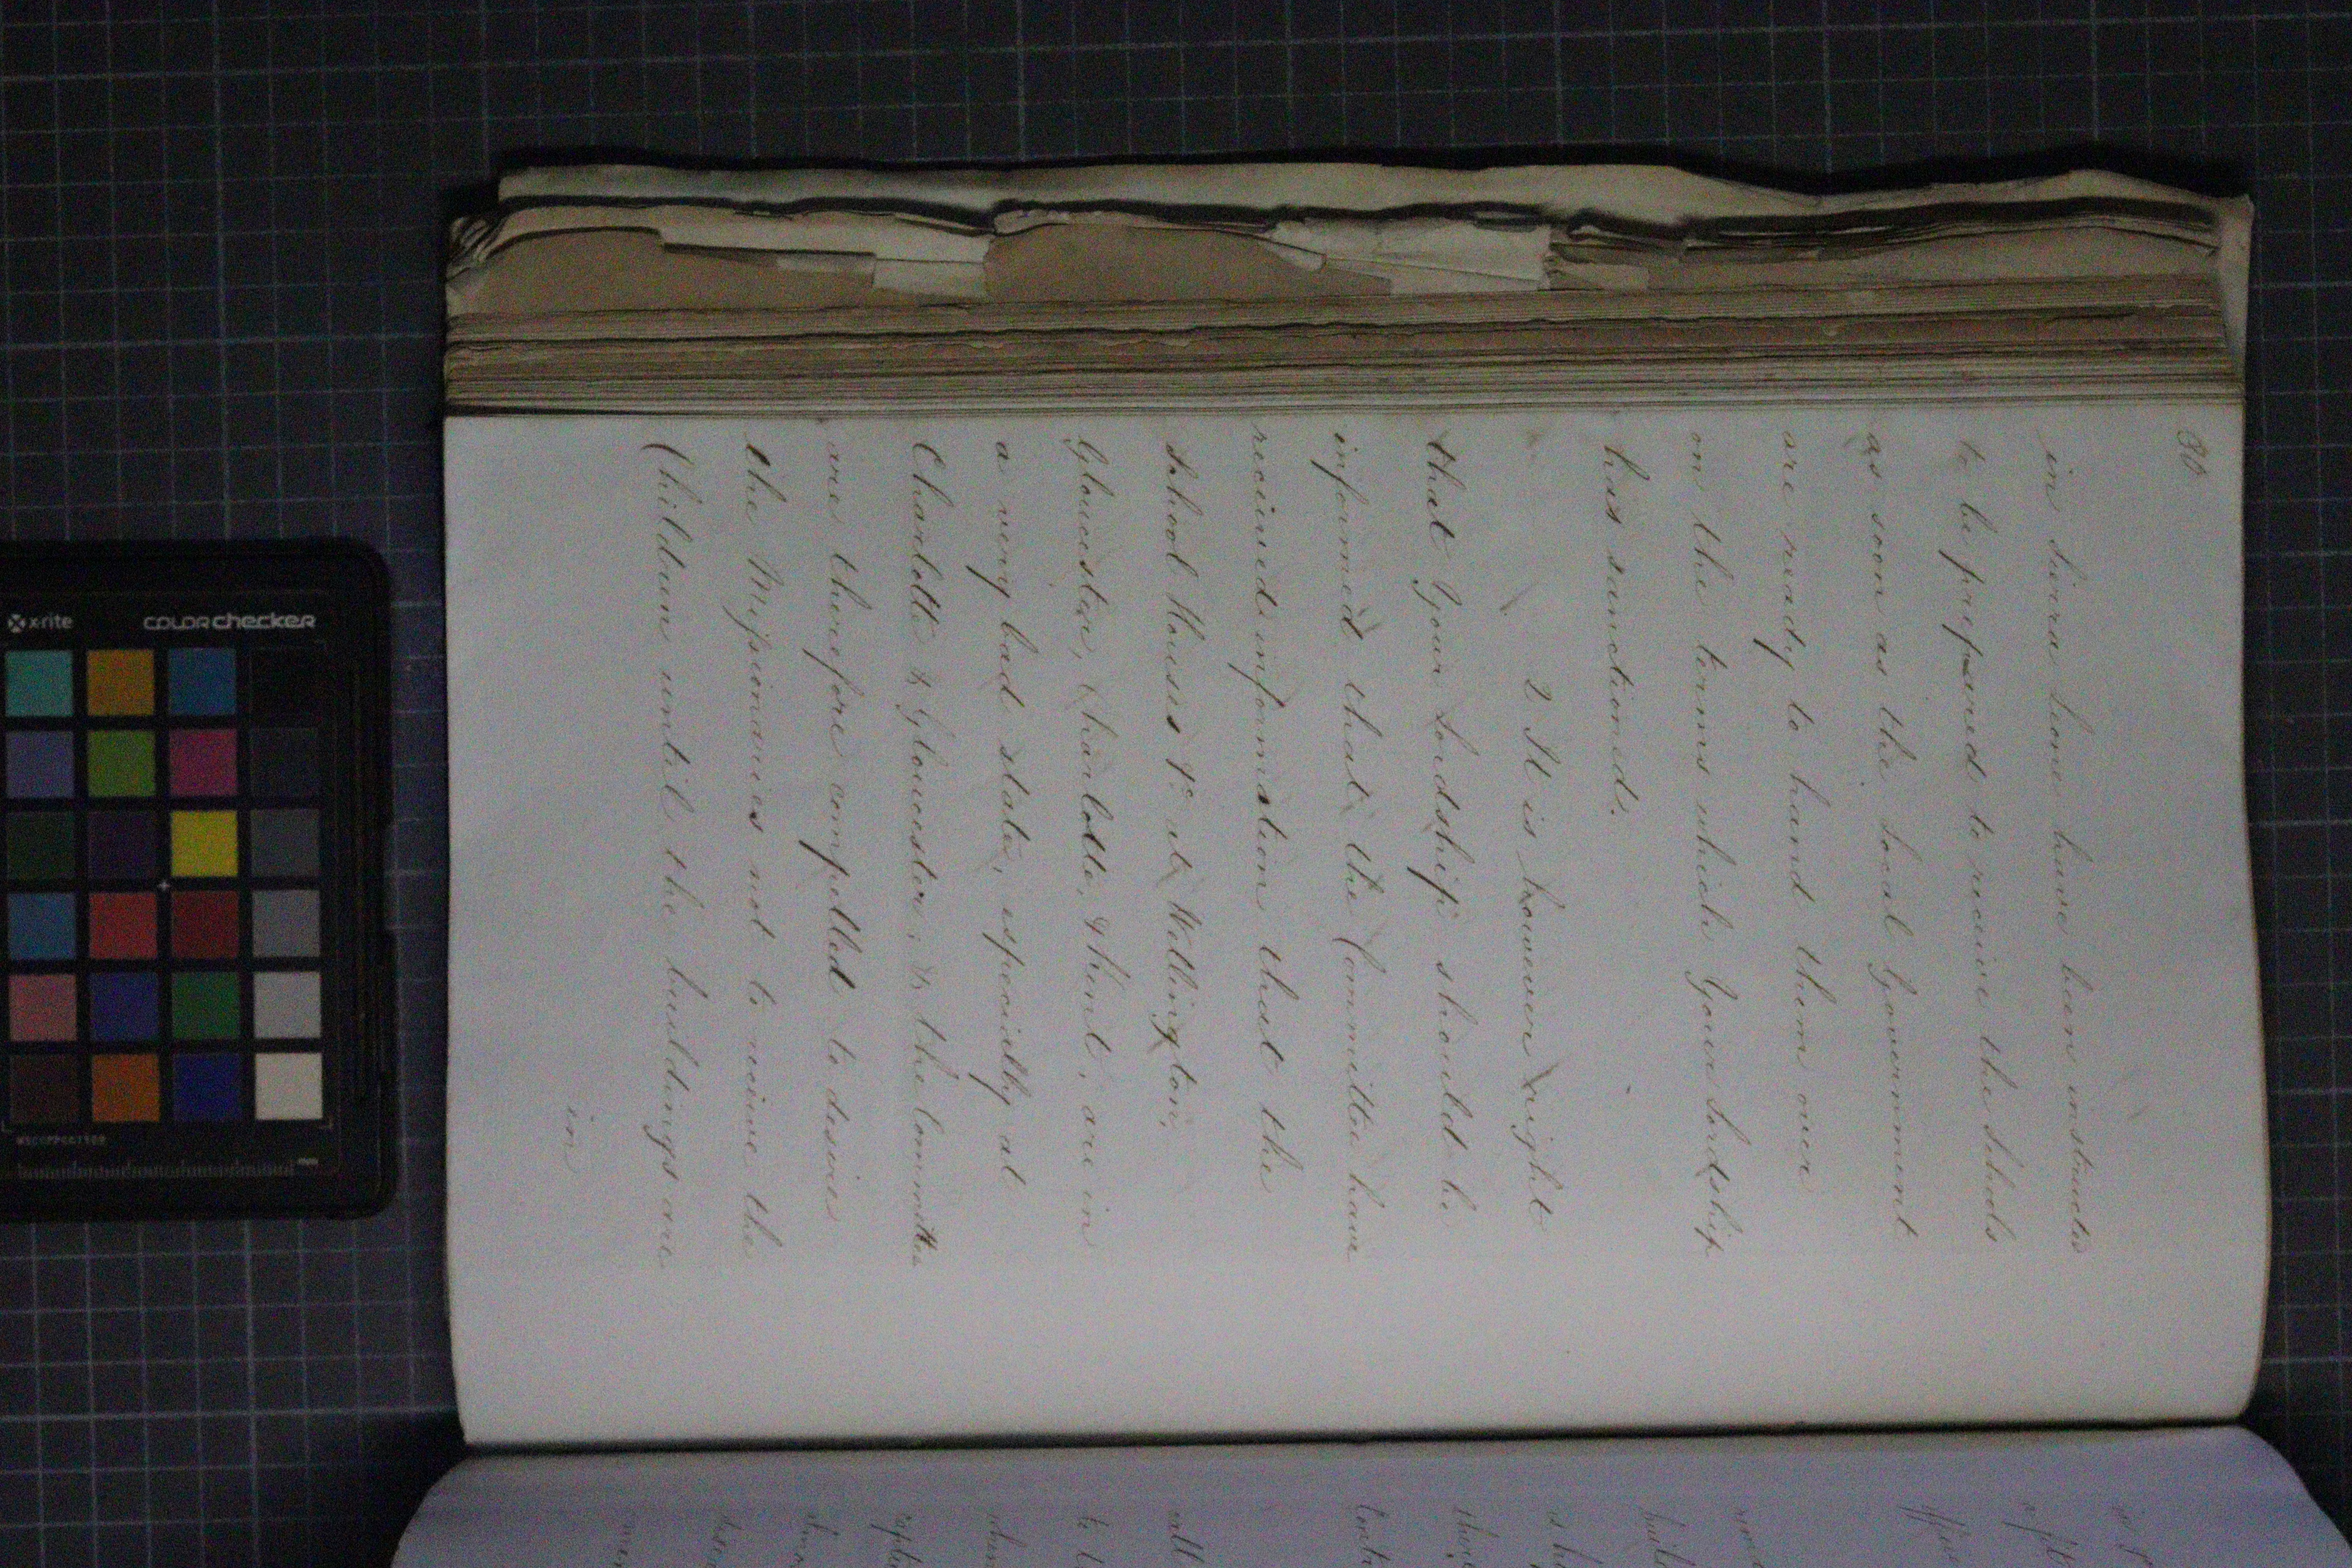 30
in Sierra Leone have been instructed
to be prepared to receive the Schools
as soon as the Local Government
are ready to hand them over
on the terms which Your Lordship
has sanctioned.
2 It is however right
that Your Lordship should be
informed that the Committee have
received information that the
School Houses &c at Wellington,
Gloucester, Charlotte, & Kent, are in
a very bad state, especially at
Charlotte & Gloucester; & the Committee
are therefore compelled to desire
the Missionaries not to receive the
Children until the buildings are
in
x-rite
colorchecker